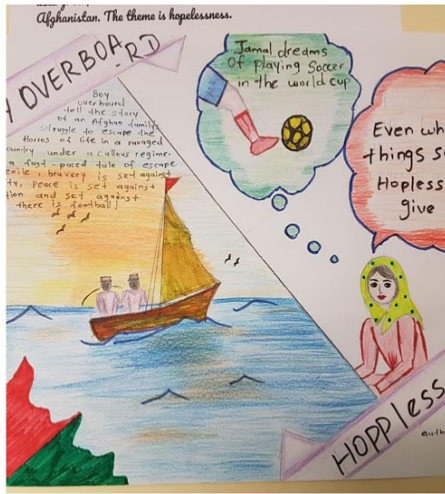 Afghanistan. The theme is hopelessness.
Y OVERBOARD
Boy
overbound
tell the story
of an Afghan family
struggle to escape the
Horres of life in a ravaged
country under a callous regime.
a fast-paced tale of escape
bravery is set against
peace is set against
tion and set against
there is football
Jamal dreams
Of playing Soccer
in the world cup
Even wh
things s
Hopless
give
HOPPless
auth